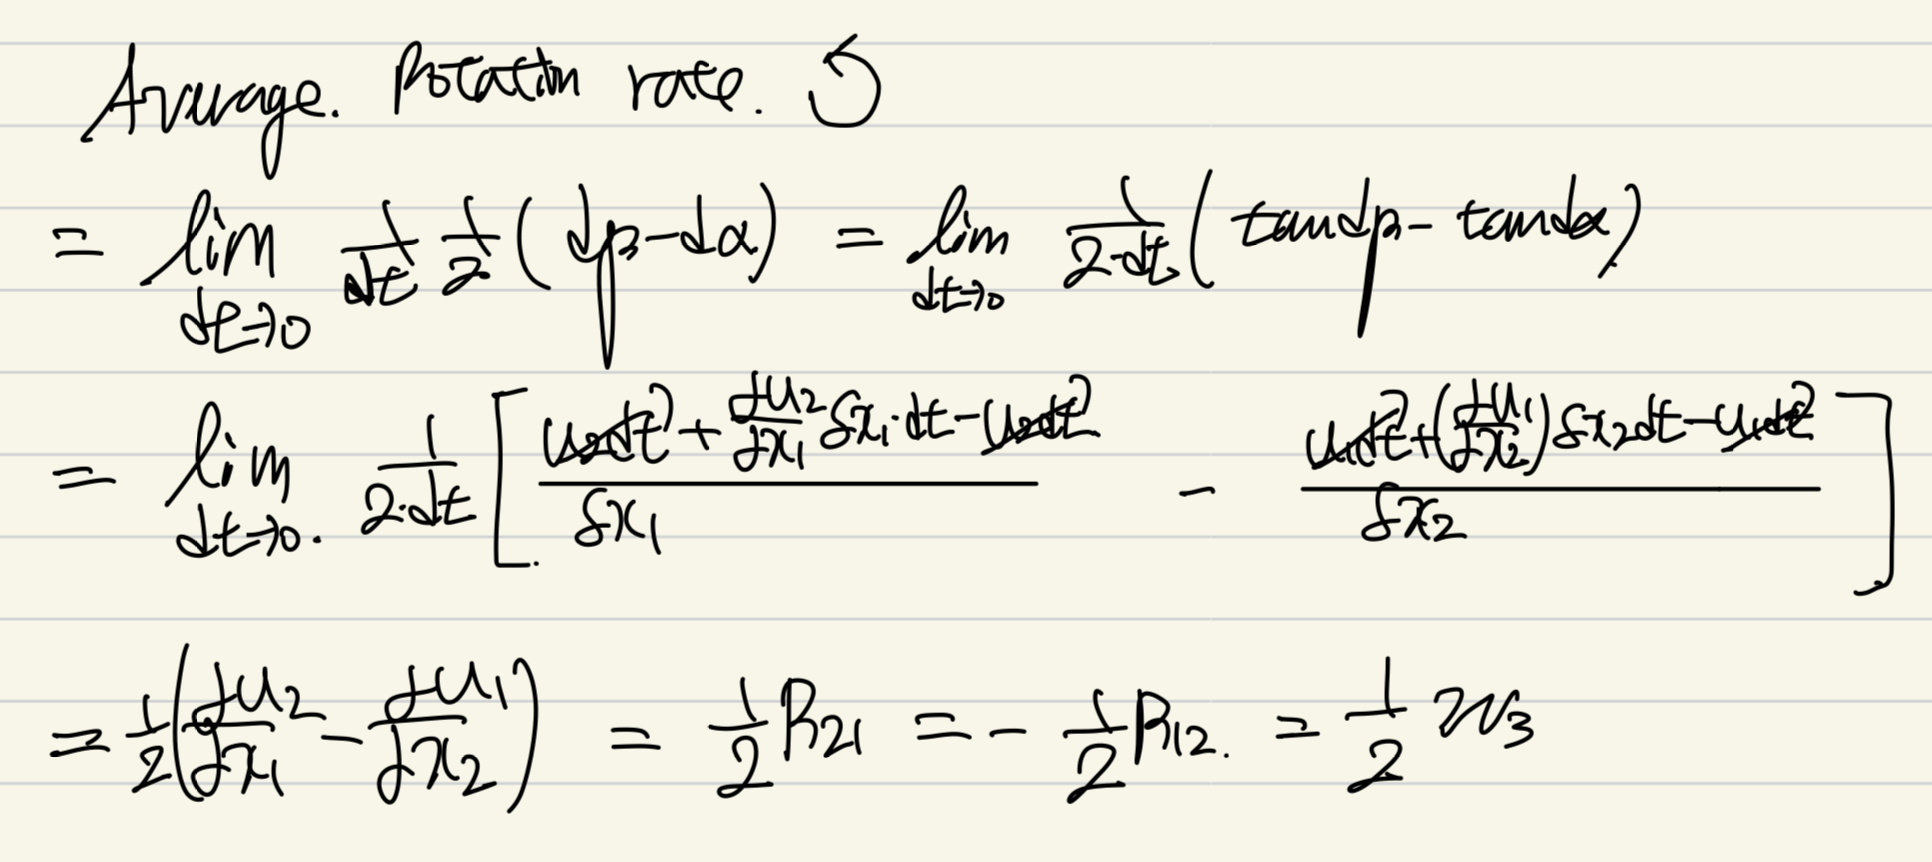 Average. Rotation rate. ↺
= lim_{dt→0} 1/dt 1/2 (dβ-dα) = lim_{dt→0} 1/(2·dt) (tandβ - tandα)
= lim_{dt→0}. 1/(2·dt) [ (u₂dt + ∂u₂/∂x₁ δx₁·dt - u₂dt)/δx₁ - (u₁dt + (∂u₁/∂x₂) δx₂dt - u₁dt)/δx₂ ]
= 1/2 (∂u₂/∂x₁ - ∂u₁/∂x₂) = 1/2 R₂₁ = - 1/2 R₁₂. = 1/2 ω₃